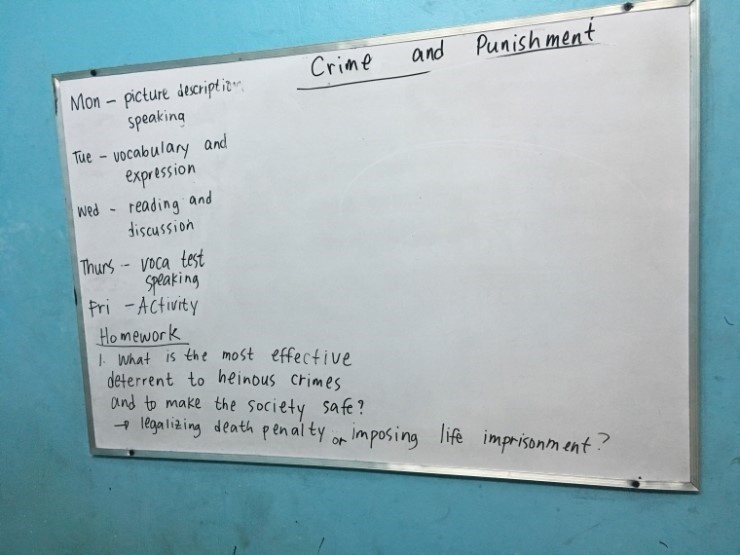 Crime and Punishment
Mon - picture description
speaking
Tue - vocabulary and
expression
Wed - reading and
discussion
Thurs - voca test
speaking
Fri - Activity
Homework
1. What is the most effective
deterrent to heinous crimes
and to make the society safe?
→ legalizing death penalty or imposing life imprisonment?